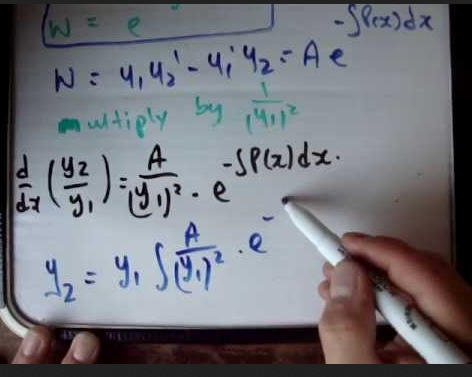 W = e
W = y₁y₂' - y₁'y₂ = A e^{-∫P(x)dx}
multiply by 1/(y₁)²
d/dx (y₂/y₁) = A/(y₁)² · e^{-∫P(x)dx}.
y₂ = y₁ ∫ A/(y₁)² · e^{-